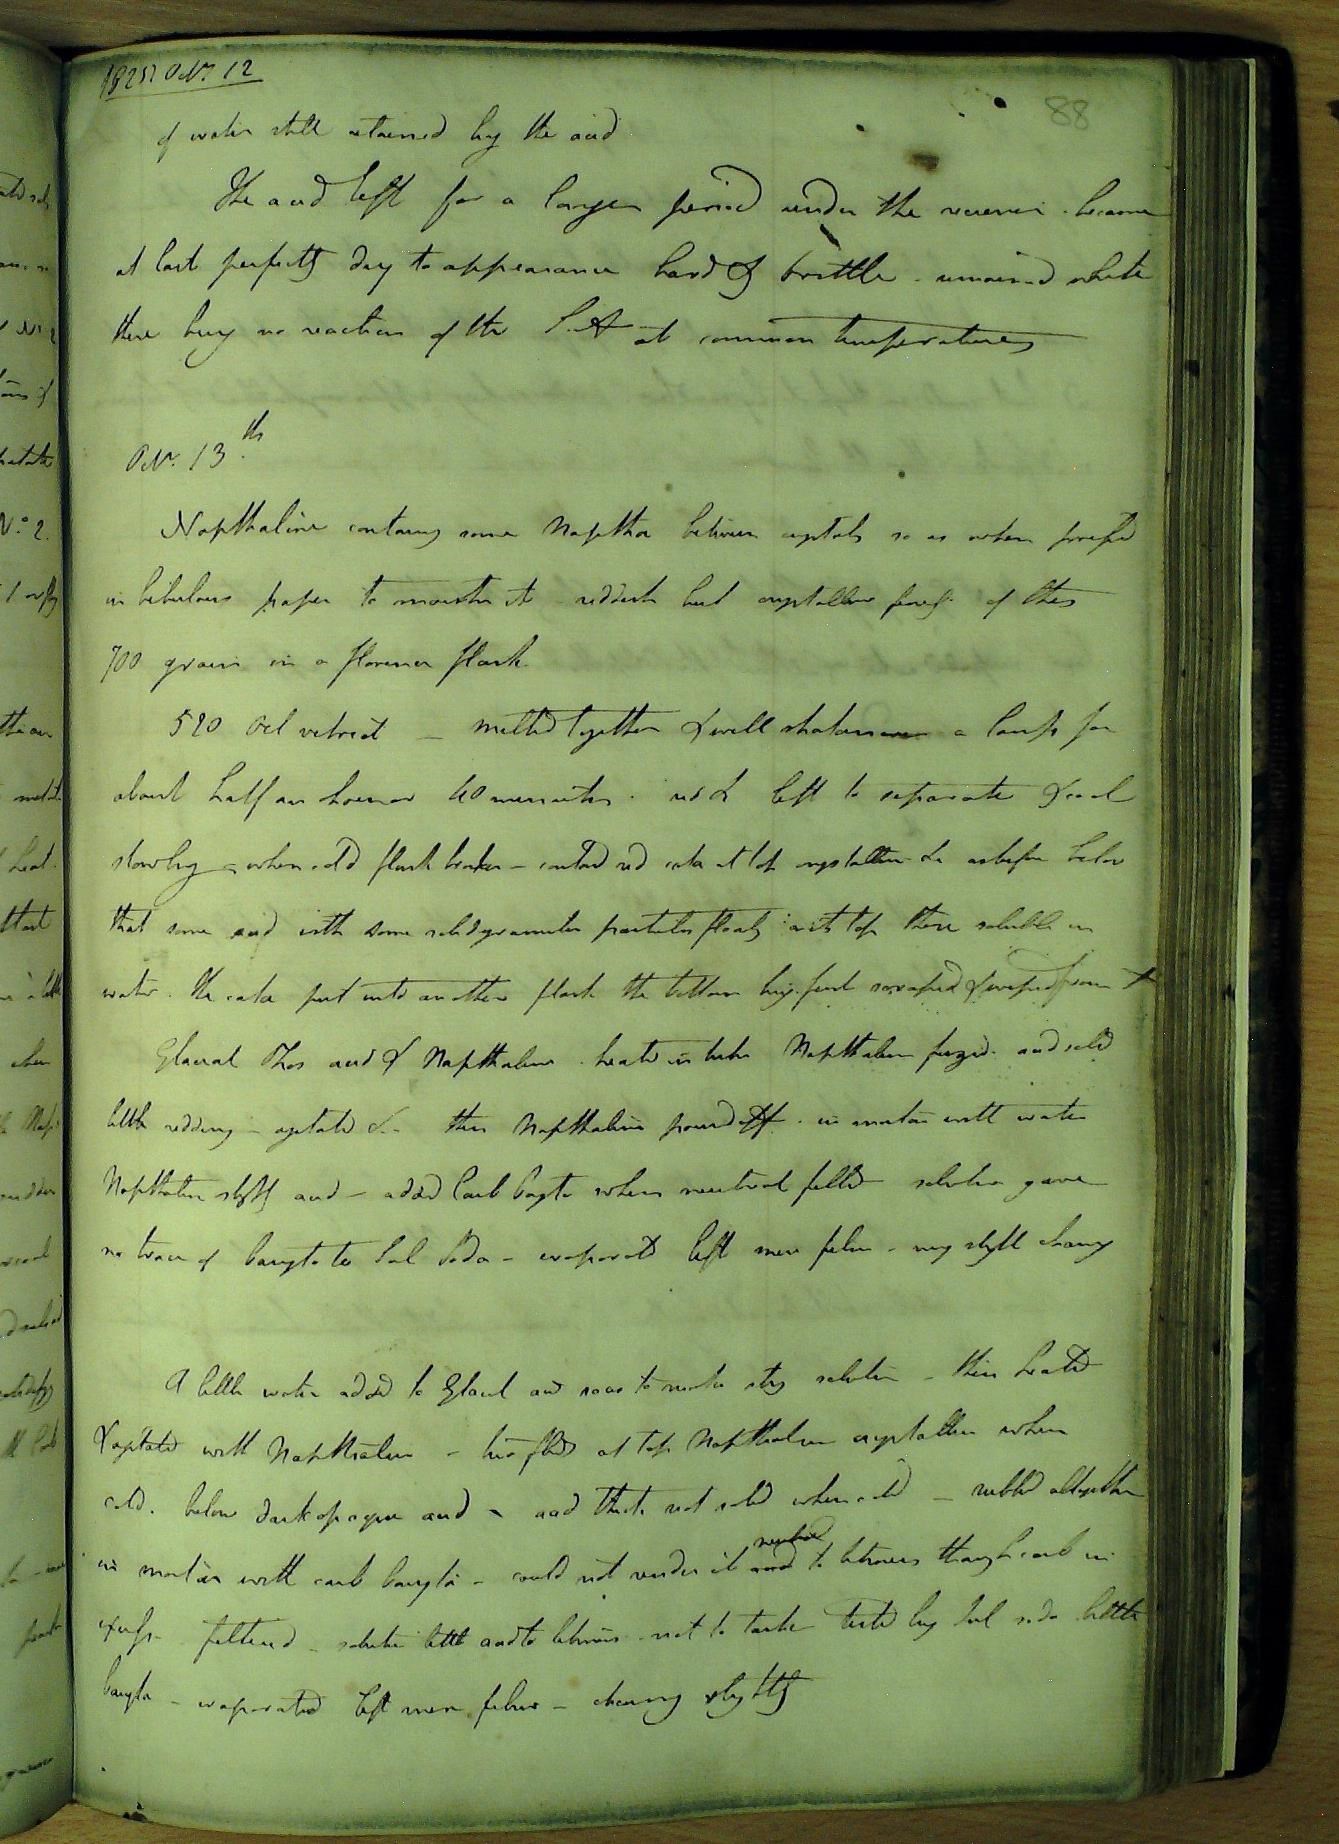 1825 Octr. 12
88
of water still retained by the acid
The acid left for a longer period under the receiver became
at last perfectly dry to appearance hard & brittle remained white
there being no reaction of the S.A at common temperatures
Octr. 13th
Napthaline containg some Naptha between crystals so as when pressed
in bibulous paper to moisten it reddish but crystalline fused of this
700 grains in a florence flask
520 Oil vitriol - melted together & well shaken over a lamp for
about half an hour or 40 minutes. red & left to separate & cool
slowly - when cold flask broken - containd red cake at top crystalline &c as before below
that some acid with some solid granular particles floatg at its top these soluble in
water. the cake put into another flask the bottom being first scraped & wiped from
Glacial Phos acid & Napthaline. heated in tube Napthaline fuzed. acid solid
little redding - agitated &c - then Napthaline poured off. in mortar with water
Napthaline slightly acid - added Carb Baryta when neutral filtd solution gave
no trace of baryta to Sul Soda - evaporated left mere film - very slight charring
A little water added to Glacial acid so as to make strong solution - then heated
& agitated with Napthaline - two fluids at top Napthaline crystalline when
cold. below dark opaque acid - acid thick not solid when cold - rubbed altogether
in mortar with carb baryta - could not render it neutral to litmus though carb in
excess - filtered - solution little acid to litmus not to taste tested by Sul soda little
baryta - evaporated left mere film - charring slightly